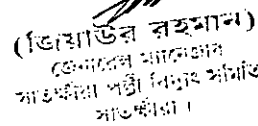 (জিয়াউর রহমান)
জেনারেল ম্যানেজার
সাতক্ষীরা পল্লী বিদ্যুৎ সমিতি
সাতক্ষীরা ।